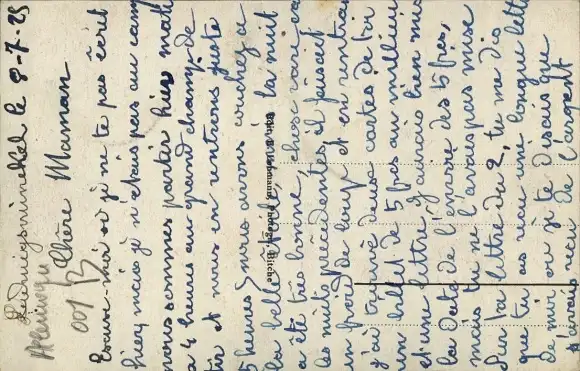 Ludwigswinkel le 8-7-25
Chère Maman
Excuse-moi si je ne te pas écrit
hier, mais je n'étais pas au camp
nous sommes partis hier matin
à 4 heures au grand champ de
tir et nous en rentrons juste
5 heures) nous avons couchez à
la belle étoile, la nuit
a été très bonne, chose rare car
les nuits précédentes il faisait
un froid de loup, et en rentrant
j'ai trouvé deux cartes de toi
un billet de 5 frs au millieu
et une lettre, j'aurais bien mis
la date de l'envoie des 5 frs,
mais tu ne l'avais pas mise
Sur ta lettre du 2, tu me dis
que tu as reçu une longue lettre
de moi où je te disais que
j'avais reçu de l'argent
Photogr. Bitche